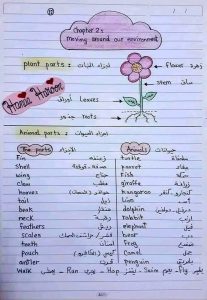 Chapter 2:
Moving around our environment
plant parts: اجزاء النبات
Flower زهرة
stem ساق
Leaves أوراق
roots جذور
Hana Haroon
Animal parts: اجزاء الحيوانات
The parts الاجزاء
Animals حيوانات
Fin زعنفة
turtle سلحفاة
Shell صدفة
parrot ببغاء
wing جناح
Fish سمكة
claw مخلب
giraffe زرافة
hooves حوافر
kangaroo كنغر
tail ذيل
Lion أسد
beak منقار
dolphin دولفين
neck رقبة
rabbit ارنب
feathers ريش
elephant فيل
scales قشور
bear دب
teeth أسنان
Frog ضفدع
Pouch كيس
Camel جمل
antler قرن
penguin بطريق
Walk يمشي Hop Ran يجري Swim يسبح Fly يطير